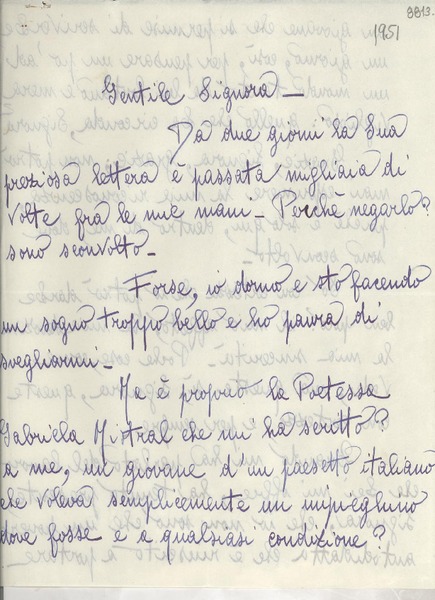 8813.
1951
Gentile Signora –
Da due giorni la Sua
preziosa lettera è passata migliaia di
volte fra le mie mani – Perché negarlo?
sono sconvolto –
Forse, io dormo e sto facendo
un sogno troppo bello e ho paura di
svegliarmi –
Ma è proprio la Poetessa
Gabriela Mistral che mi ha scritto?
a me, un giovane d'un paesetto italiano
che voleva semplicemente un impieghino
dove fosse e a qualsiasi condizione?